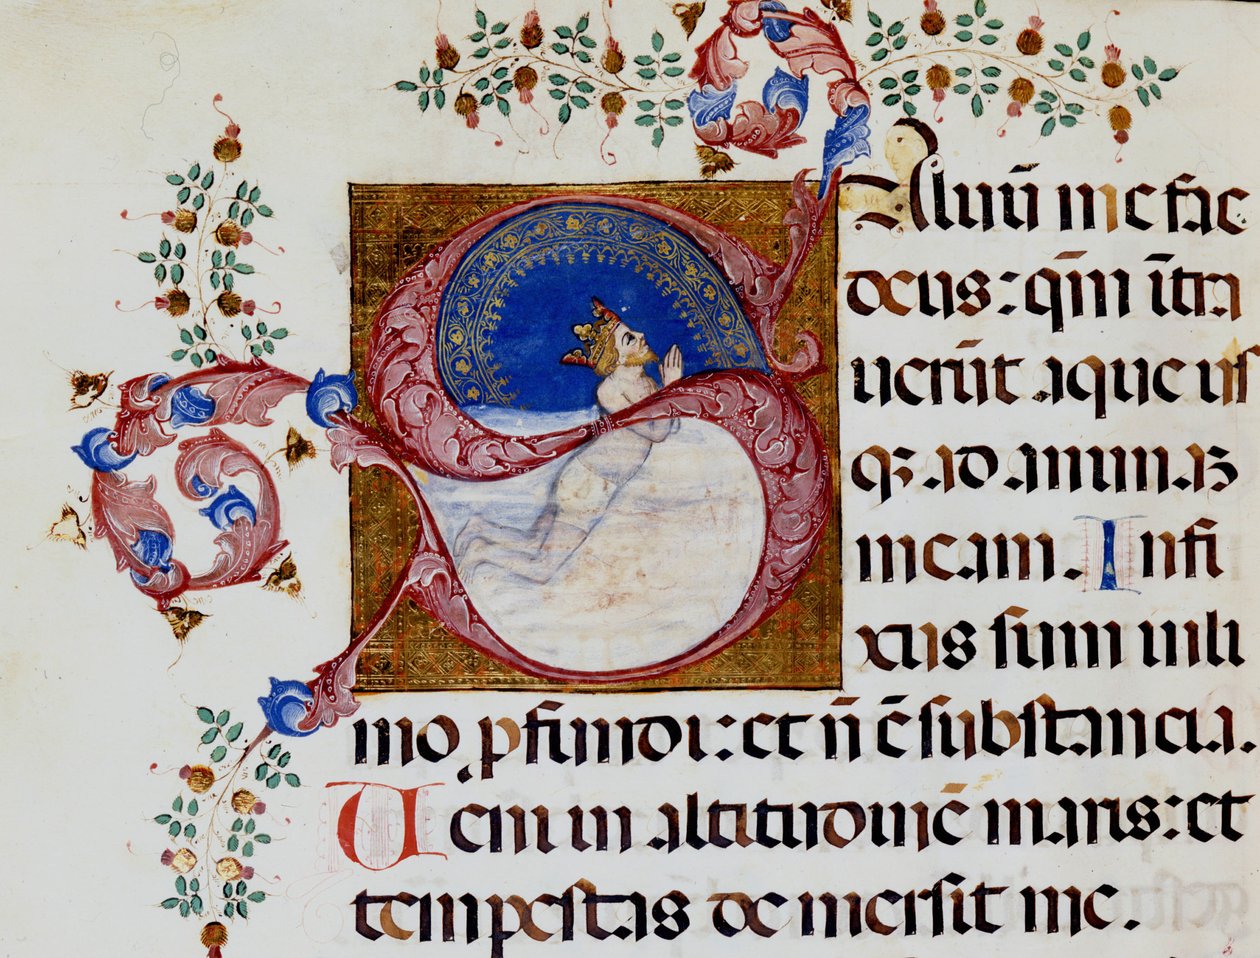 SAluū me fac
deus: qm̄ ītra
uerūt aque us
qꝫ ad animaꝫ
meam. Infi
xus sum in li
mo ꝓfundi: et n̄ ē substancia.
Ueni in altitudinē maris: et
tempestas demersit me.